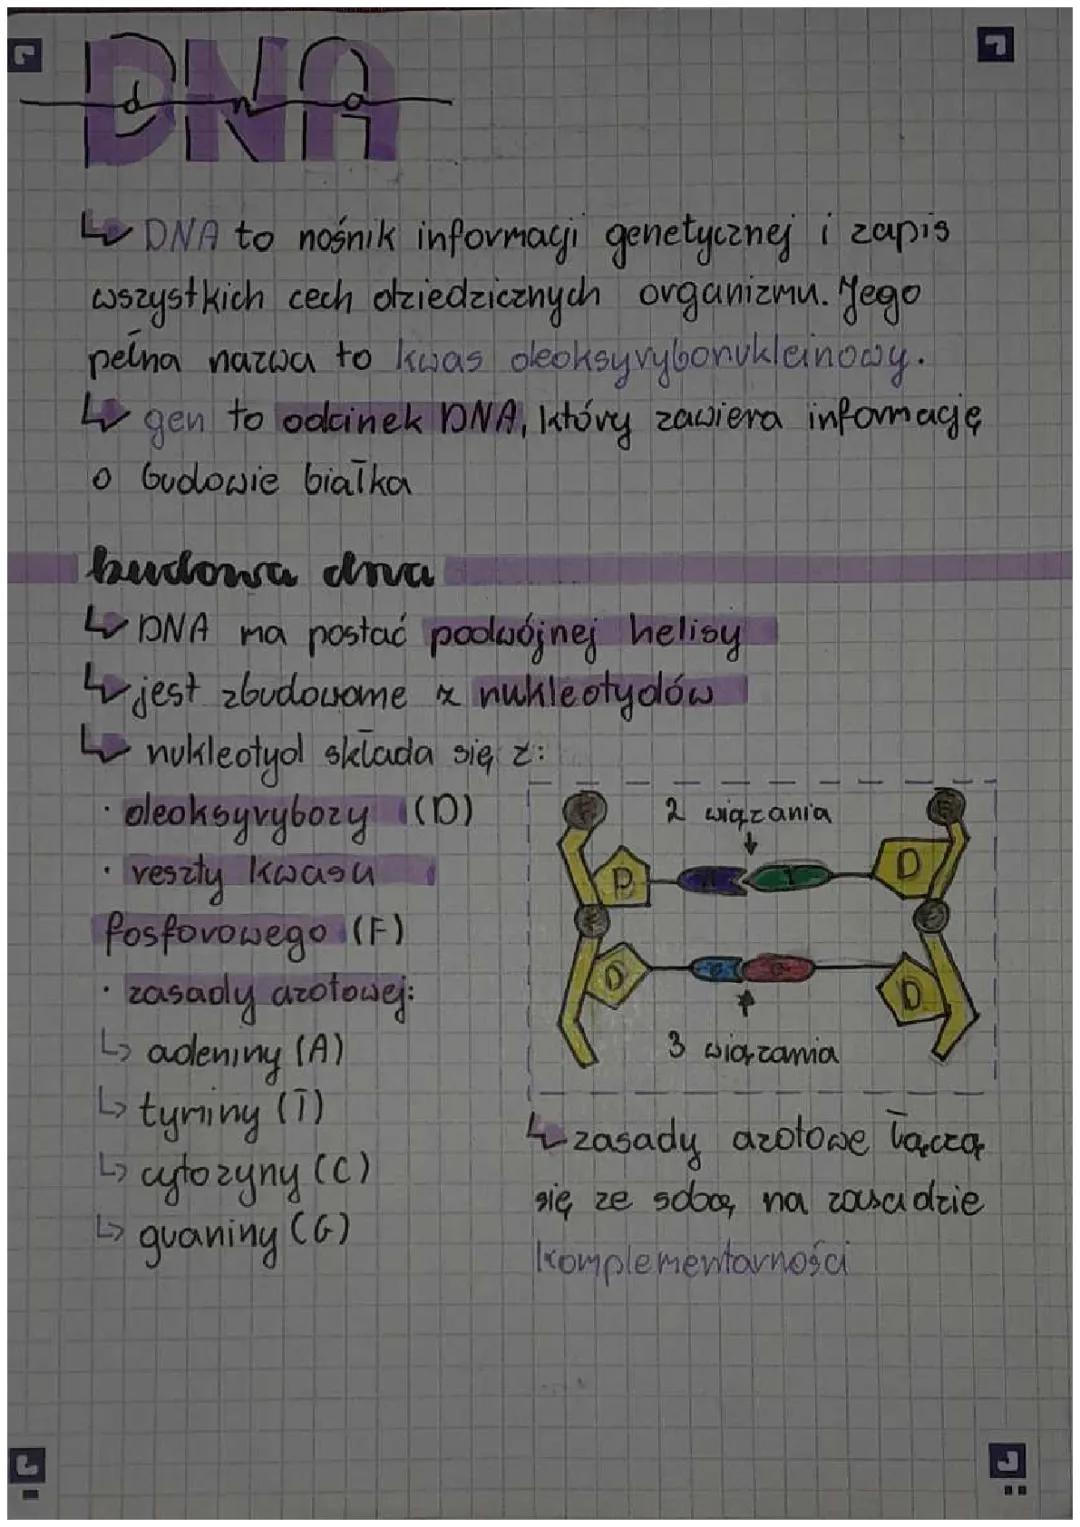 DNA
dna
DNA to nośnik informacji genetycznej i zapis
wszystkich cech dziedzicznych organizmu. Jego
pełna nazwa to kwas deoksyrybonukleinowy.
gen to odcinek DNA, który zawiera informację
o budowie białka
budowa dna
DNA ma postać podwójnej helisy
jest zbudowane z nukleotydów
nukleotyd składa się z:
· deoksyrybozy (D)
· reszty kwasu
fosforowego (F)
· zasady azotowej:
adeniny (A)
tyminy (T)
cytozyny (C)
guaniny (G)
2 wiązania
F F
D A T D
F F
D C G D
3 wiązania
zasady azotowe łączą
się ze sobą na zasadzie
komplementarności